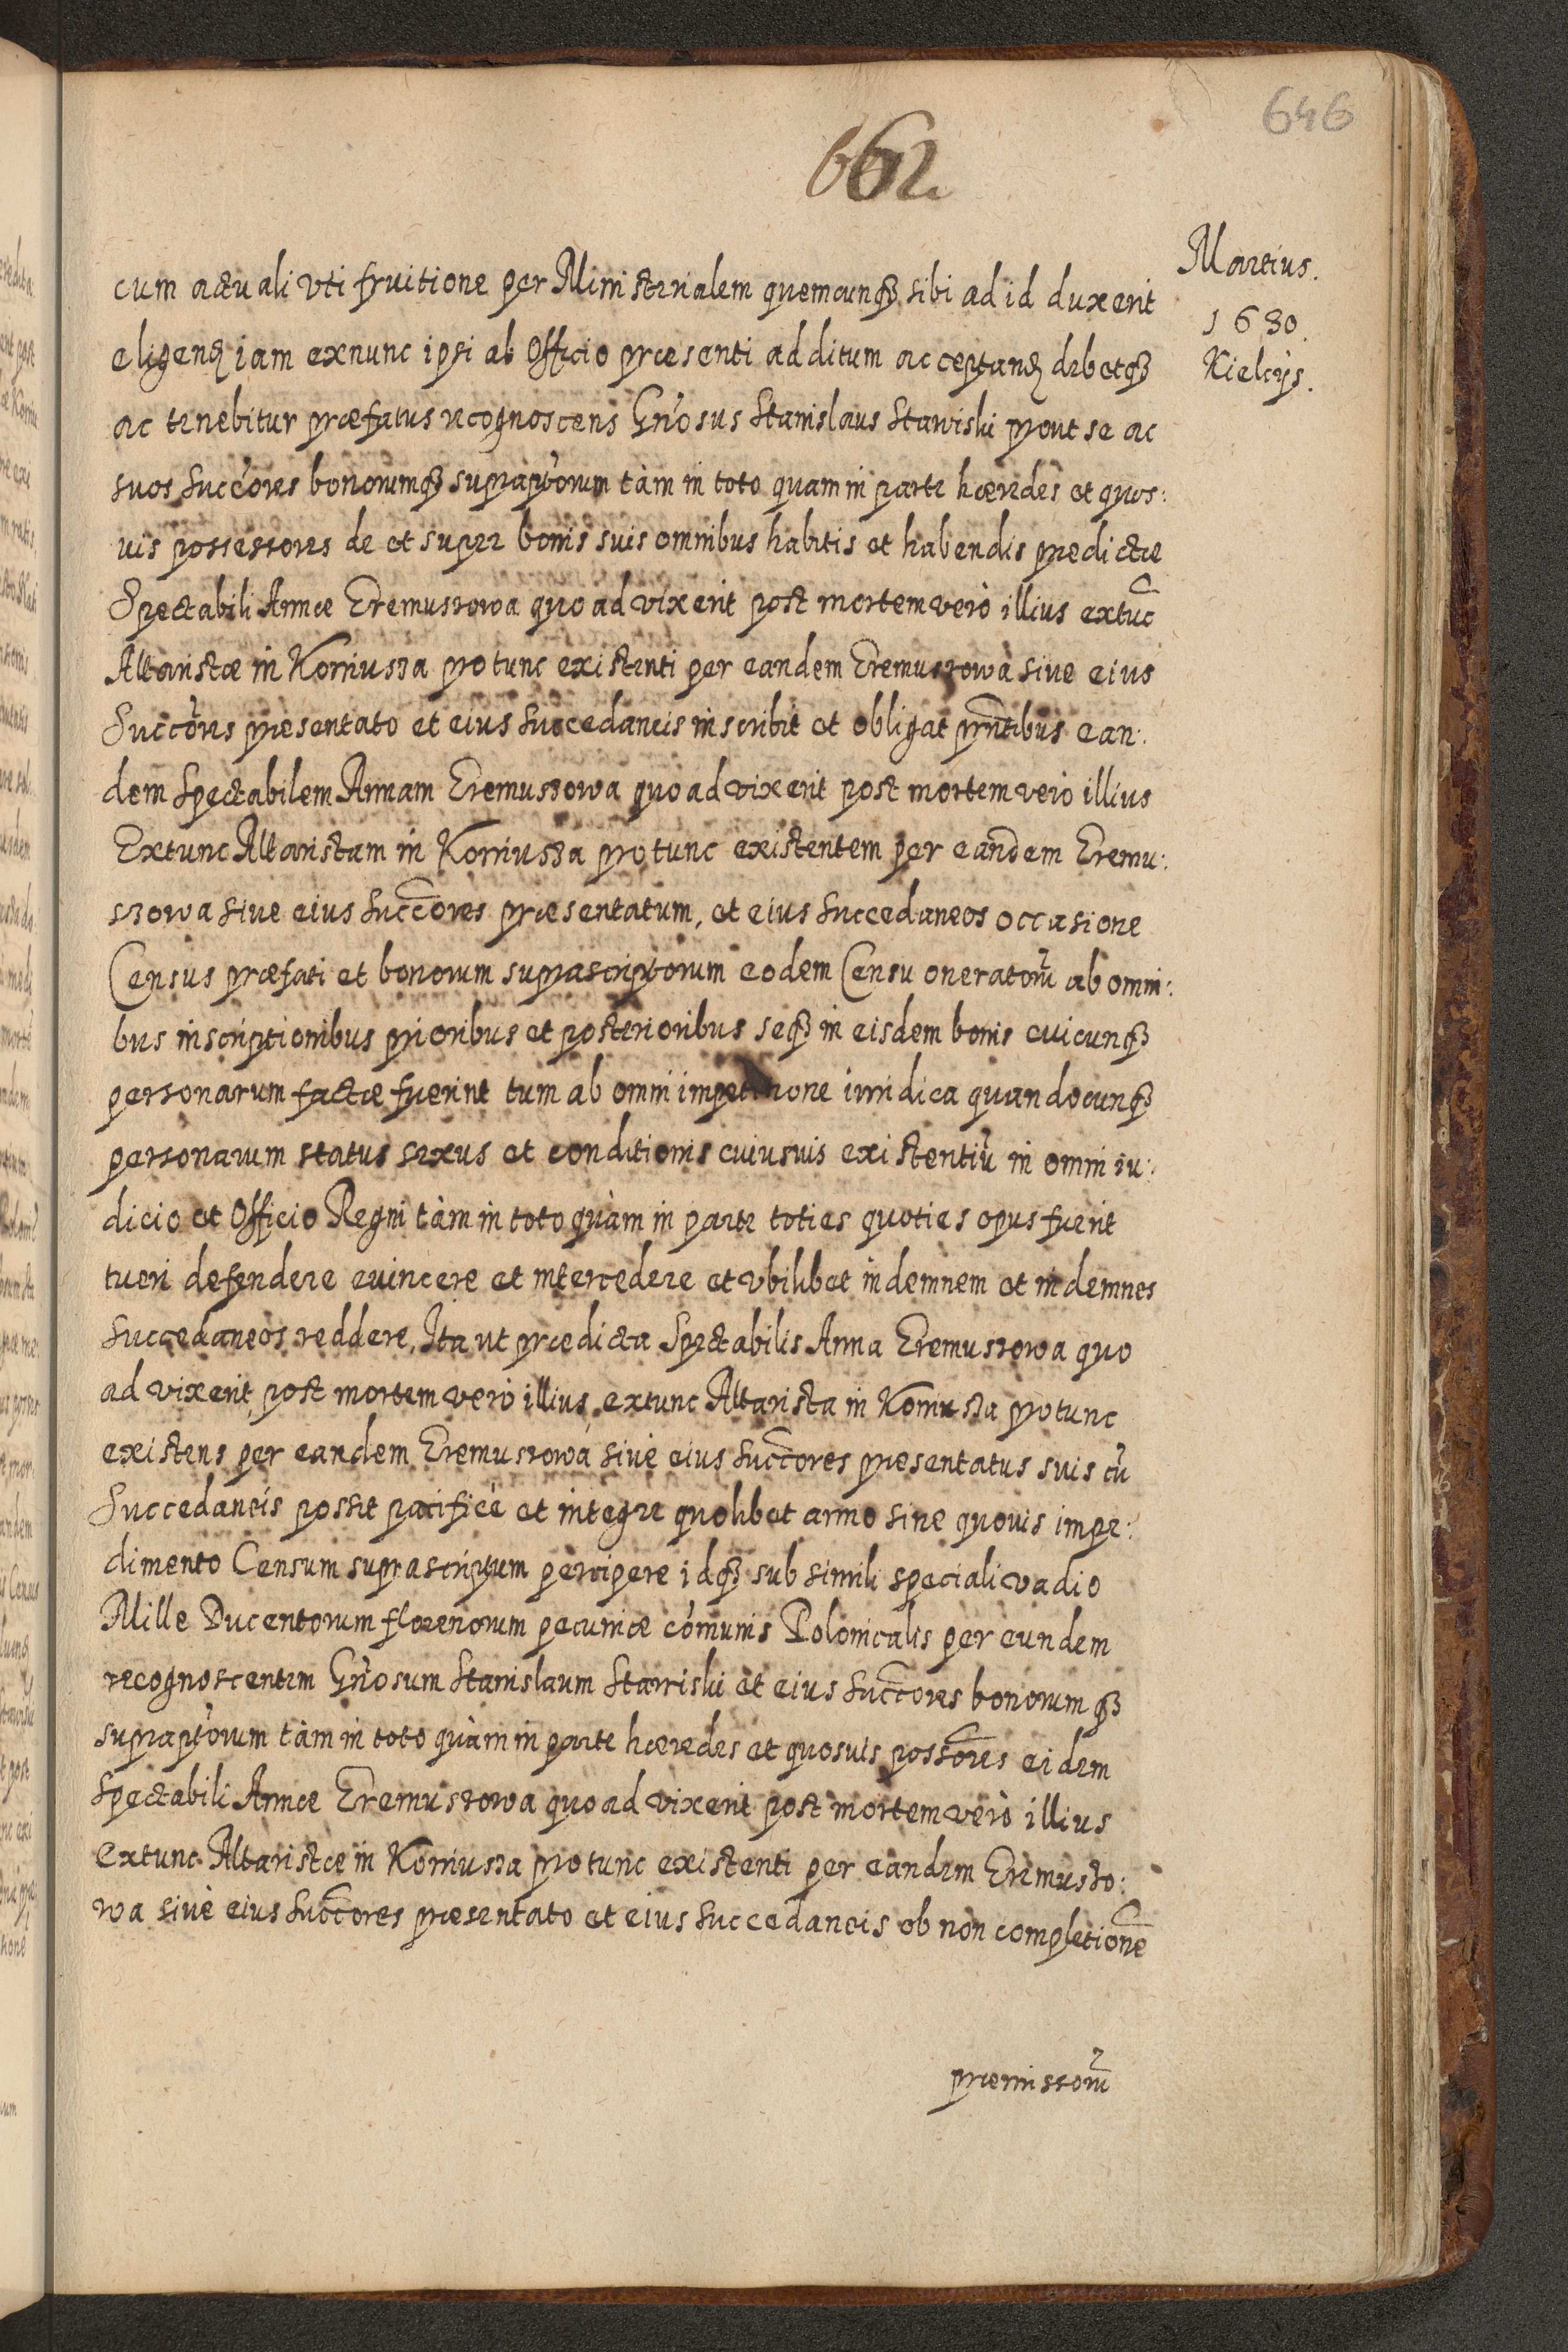 646
662
Martius.
1630.
Kielcijs.
cum actuali vti fruitione per Ministerialem quemcunqȝ sibi ad id duxerit
eligenđ iam exnunc ipsi ab Officio præsenti additum acceptanđ debetqȝ
ac tenebitur præfatus recognoscens Gn̄osus Stanislaus Stawiski prout se ac
suos Succ̄ores bonorumqȝ suprap̄torum tàm in toto quam in parte hæredes et quos:
uis possessores de et super bonis suis omnibus habitis et habendis predictæ
Spectabili Annæ Eremuszowa quo ad vixerit post mortem verò illius extūc
Altaristæ in Korniussa pro tunc existenti per eandem Eremuszowa siue eius
Succ̄ores presentato et eius Succedaneis inscribit et obligat pr̄ntibus ean:
dem Spectabilem Annam Eremuszowa quo ad vixerit post mortem verò illius
Extunc Altaristam in Korniussa pro tunc existentem per eandem Eremu:
szowa siue eius Succ̄ores præsentatum, et eius Succedaneos occasione
Census præfati et bonorum suprascriptorum eodem Censu oneratorū ab omni:
bus inscriptionibus prioribus et posterioribus seqȝ in eisdem bonis cuicunqȝ
personarum factæ fuerint tum ab omni impetitione iuridica quandocunqȝ
personarum status sexus et conditionis cuiusuis existentiū in omni iu:
dicio et Officio Regni tàm in toto quàm in parte toties quoties opus fuerit
tueri defendere euincere et intercedere et vbilibet indemnem et indemnes
Succedaneos reddere, Ita ut prædicta Spectabilis Anna Eremuszowa quo
ad vixerit post mortem verò illius, extunc Altarista in Korniussa pro tunc
existens per eandem Eremuszowa siue eius Succ̄ores presentatus suis cū
Succedaneis possit pacificè et integre quolibet anno sine quouis impe:
dimento Censum suprascriptum percipere idqȝ sub simili speciali vadio
Mille Ducentorum florenorum pecuniæ co͂munis Polonicalis per eundem
recognoscentem Gn̄osum Stanislaum Stawiski et eius Succ̄ores bonorumqȝ
suprap̄torum tàm in toto quàm in parte hæredes et quosuis poss̄ores eidem
Spectabili Annæ Eremuszowa quo ad vixerit post mortem verò illius
extunc Altaristæ in Korniussa pro tunc existenti per eandem Eremuszo:
wa siuè eius Succ̄ores præsentato et eius Succedaneis ob non completionē
præmissorū